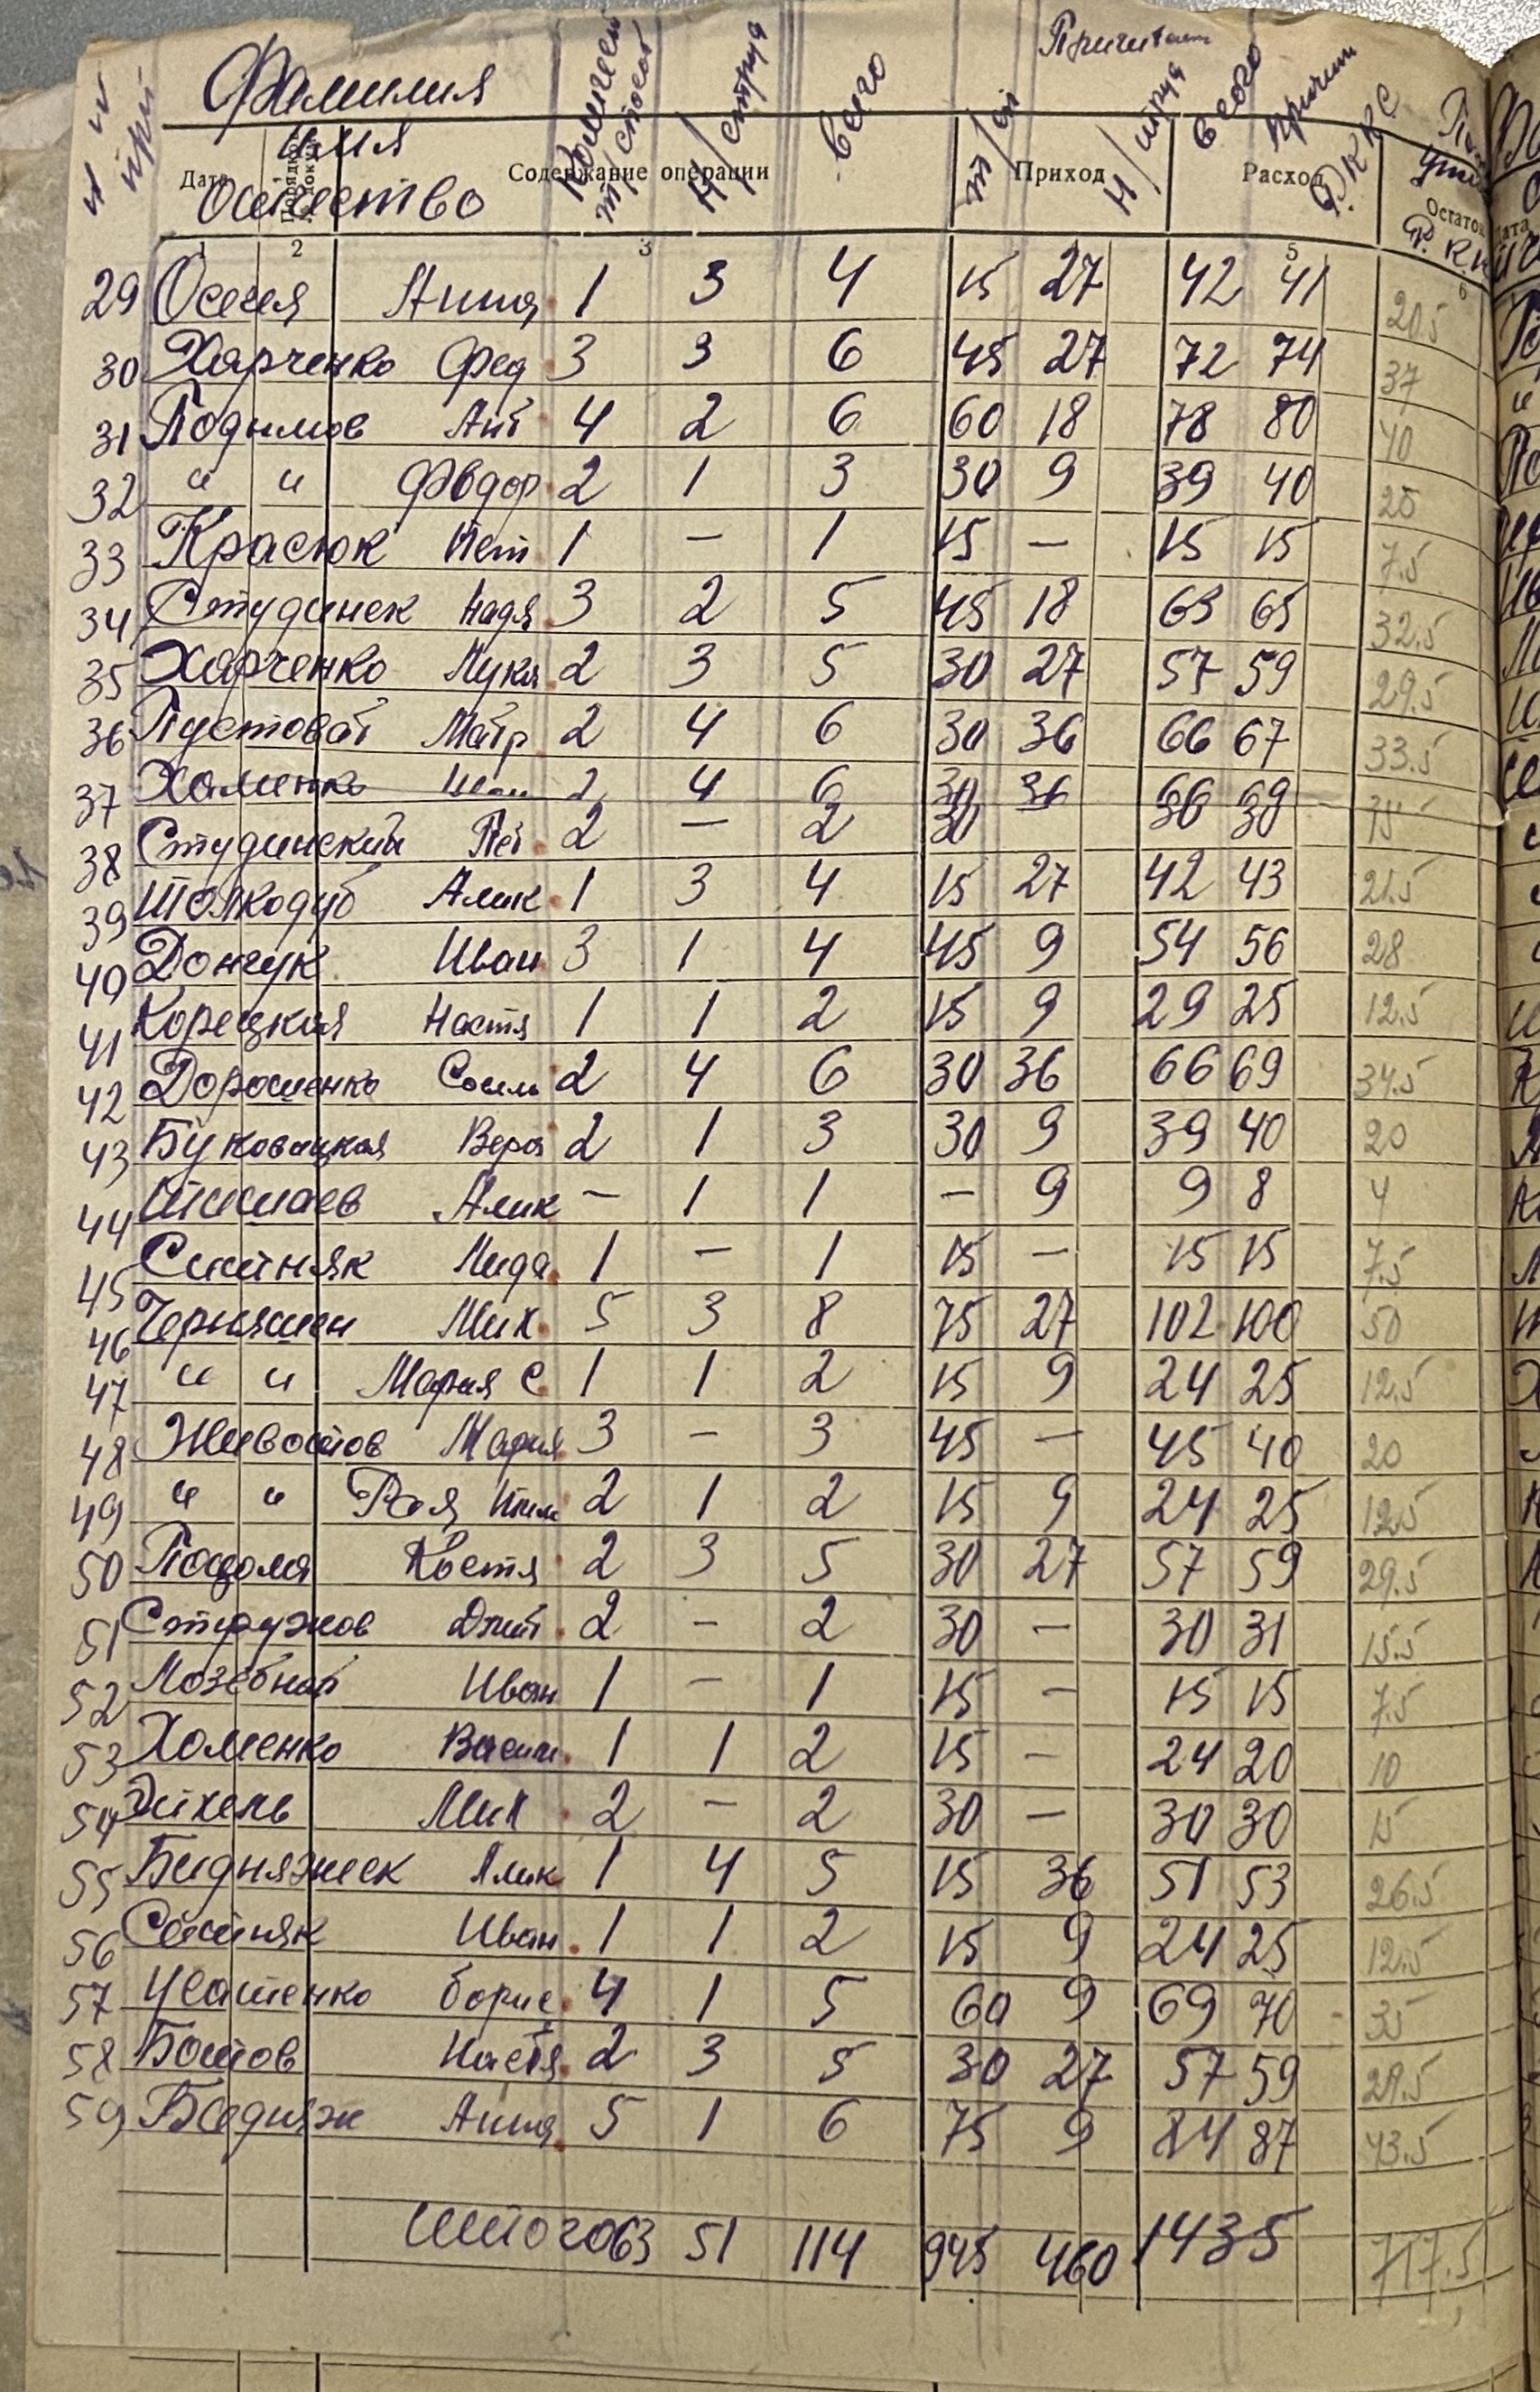 Фамилия
имя
отчество
всего
всего
РККС
Дата
Содержание операции
Приход
Расход
Остаток
1 2 3 5 6
29 Осеня Анна 1 3 4 15 27 42 41 20.5
30 Харченко Фед 3 3 6 45 27 72 74 37
31 Подымов Ант 4 2 6 60 18 78 80 40
32 " " Фвдор 2 1 3 30 9 39 40 20
33 Красюк Пет 1 – 1 15 – 15 15 7.5
34 Студинск Надя 3 2 5 45 18 63 65 32.5
35 Харченко Лукя 2 3 5 30 27 57 59 29.5
36 Пустоват Матр 2 4 6 30 36 66 67 33.5
37 Хоменко Иван 2 4 6 30 36 66 69
38 Студинский Пет 2 – 2 30 30 30 15
39 Толкодуб Алик 1 3 4 15 27 42 43 21.5
40 Дончук Иван 3 1 4 45 9 54 56 28
41 Корецкая Настя 1 1 2 15 9 29 25 12.5
42 Дорошенко 2 4 6 30 36 66 69 34.5
43 Буковацкая Вера 2 1 3 30 9 39 40 20
44 Алик – 1 1 – 9 9 8 4
45 Ситняк Лида 1 – 1 15 – 15 15 7.5
46 Мих. 5 3 8 75 27 102 100 50
47 " " Мария С. 1 1 2 15 9 24 25 12.5
48 Животов Мария 3 – 3 45 – 45 40 20
49 " " Рая 2 1 2 15 9 24 25 12.5
50 Костя 2 3 5 30 27 57 59 29.5
51 Стружов Дмит 2 – 2 30 – 30 31 15.5
52 Иван 1 – 1 15 – 15 15 7.5
53 Хоменко Васил. 1 1 2 15 – 24 20 10
54 Мих 2 – 2 30 – 30 30 15
55 Бидняжек Алик 1 4 5 15 36 51 53 26.5
56 Ситняк Иван 1 1 2 15 9 24 25 12.5
57 Ивашенко Борис 4 1 5 60 9 69 70 35
58 Ботов Настя 2 3 5 30 27 57 59 29.5
59 Бедняж Анна 5 1 6 75 9 84 87 43.5
Итого 63 51 114 945 460 1435 717.5